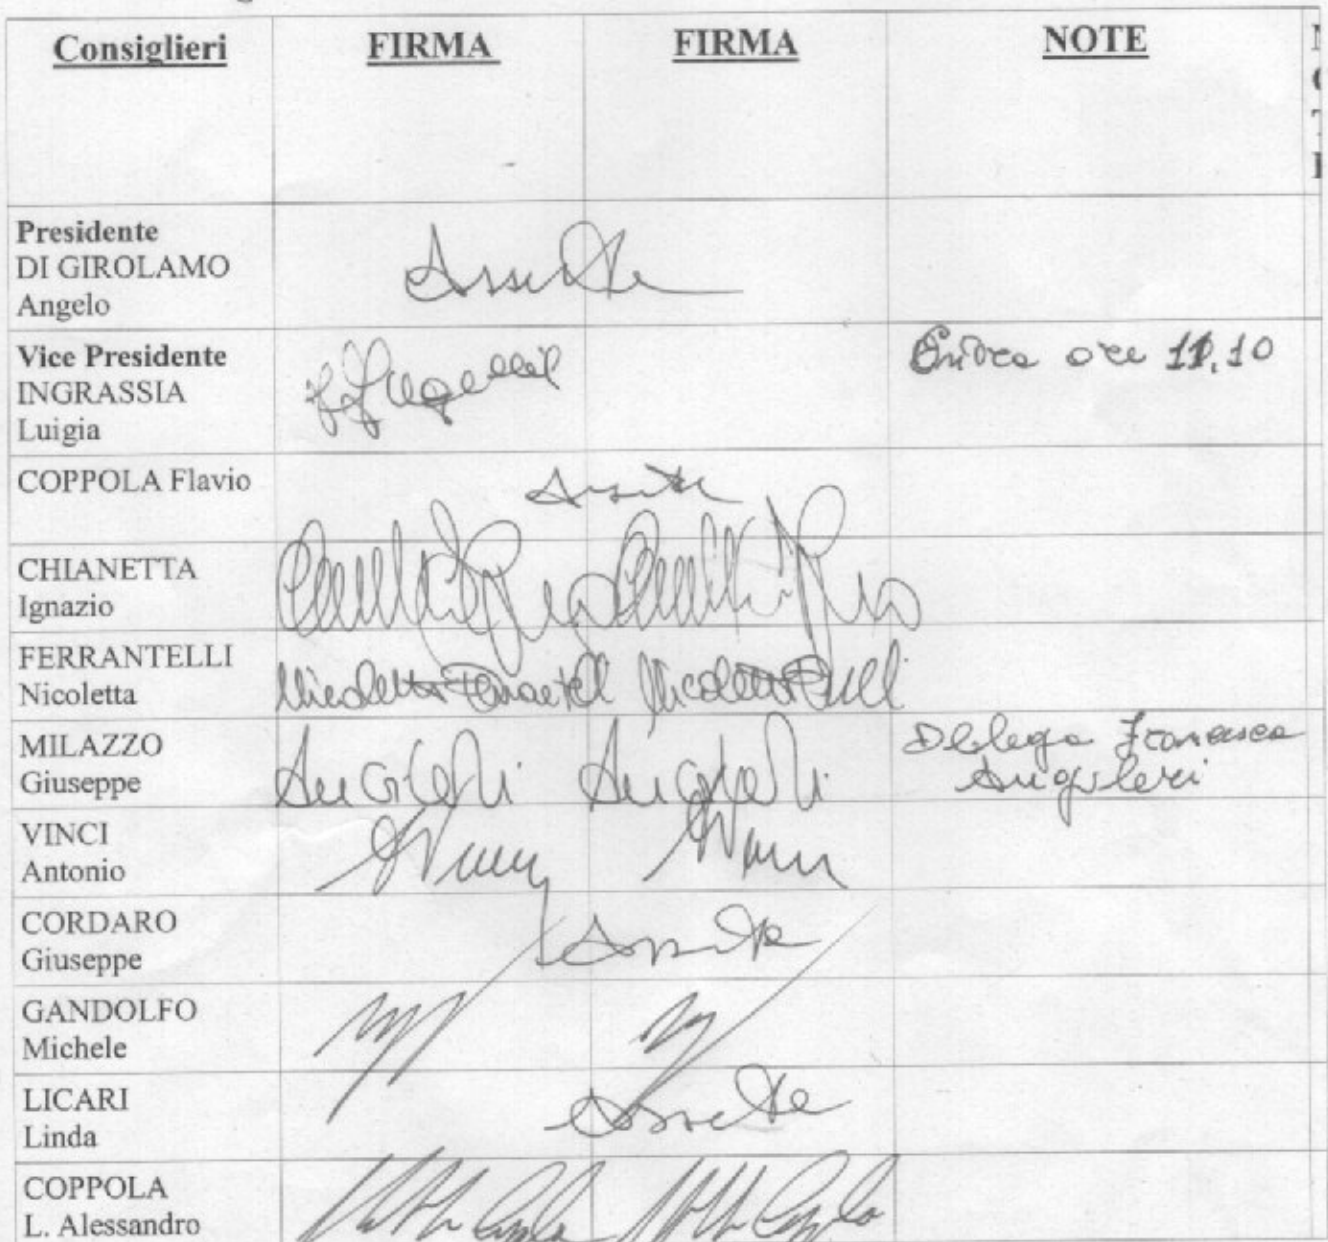 Consiglieri FIRMA FIRMA NOTE
Presidente
DI GIROLAMO
Angelo
Assente
Vice Presidente
INGRASSIA
Luigia
Entra ore 11.10
COPPOLA Flavio
Assente
CHIANETTA
Ignazio
FERRANTELLI
Nicoletta
Nicoletta Ferrantelli Nicoletta
MILAZZO
Giuseppe
Angileri Angileri
Delega Francesca
Angileri
VINCI
Antonio
CORDARO
Giuseppe
Assente
GANDOLFO
Michele
LICARI
Linda
Assente
COPPOLA
L. Alessandro